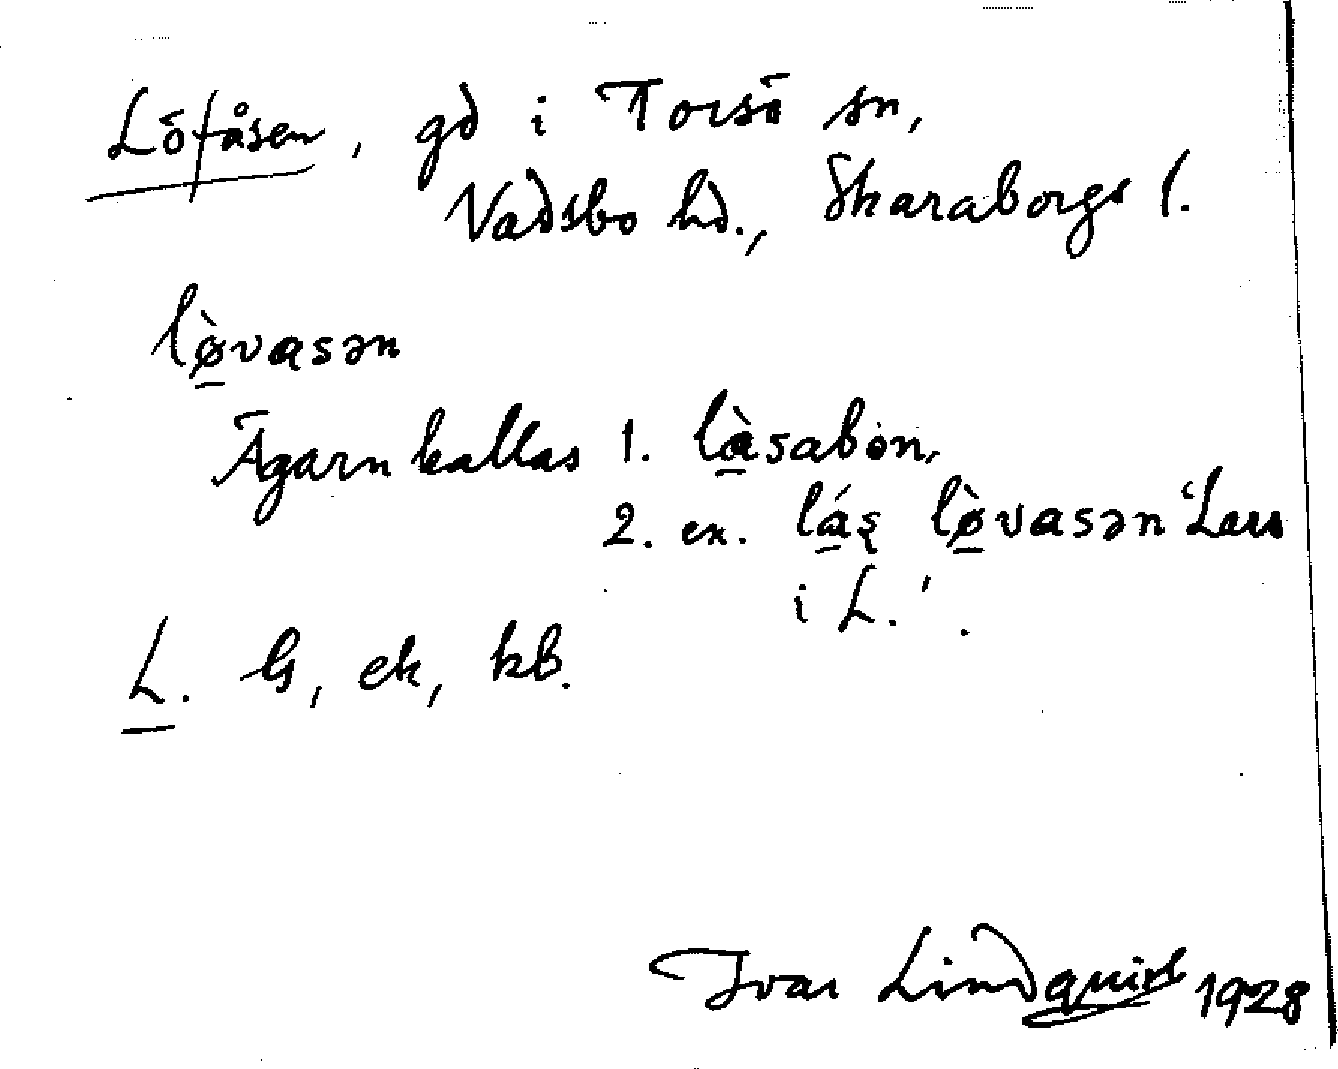 Löfåsen, gd i Torsö sn,
Vadsbo hd., Skaraborgs l.
lø̠̀vasən
Ägarn kallas 1. là̠sabon,
2. ex. lá̠ʂ lø̠̀vasən 'Lars
i L.'.
L. G, ek, kb.
Ivar Lindquist 1928